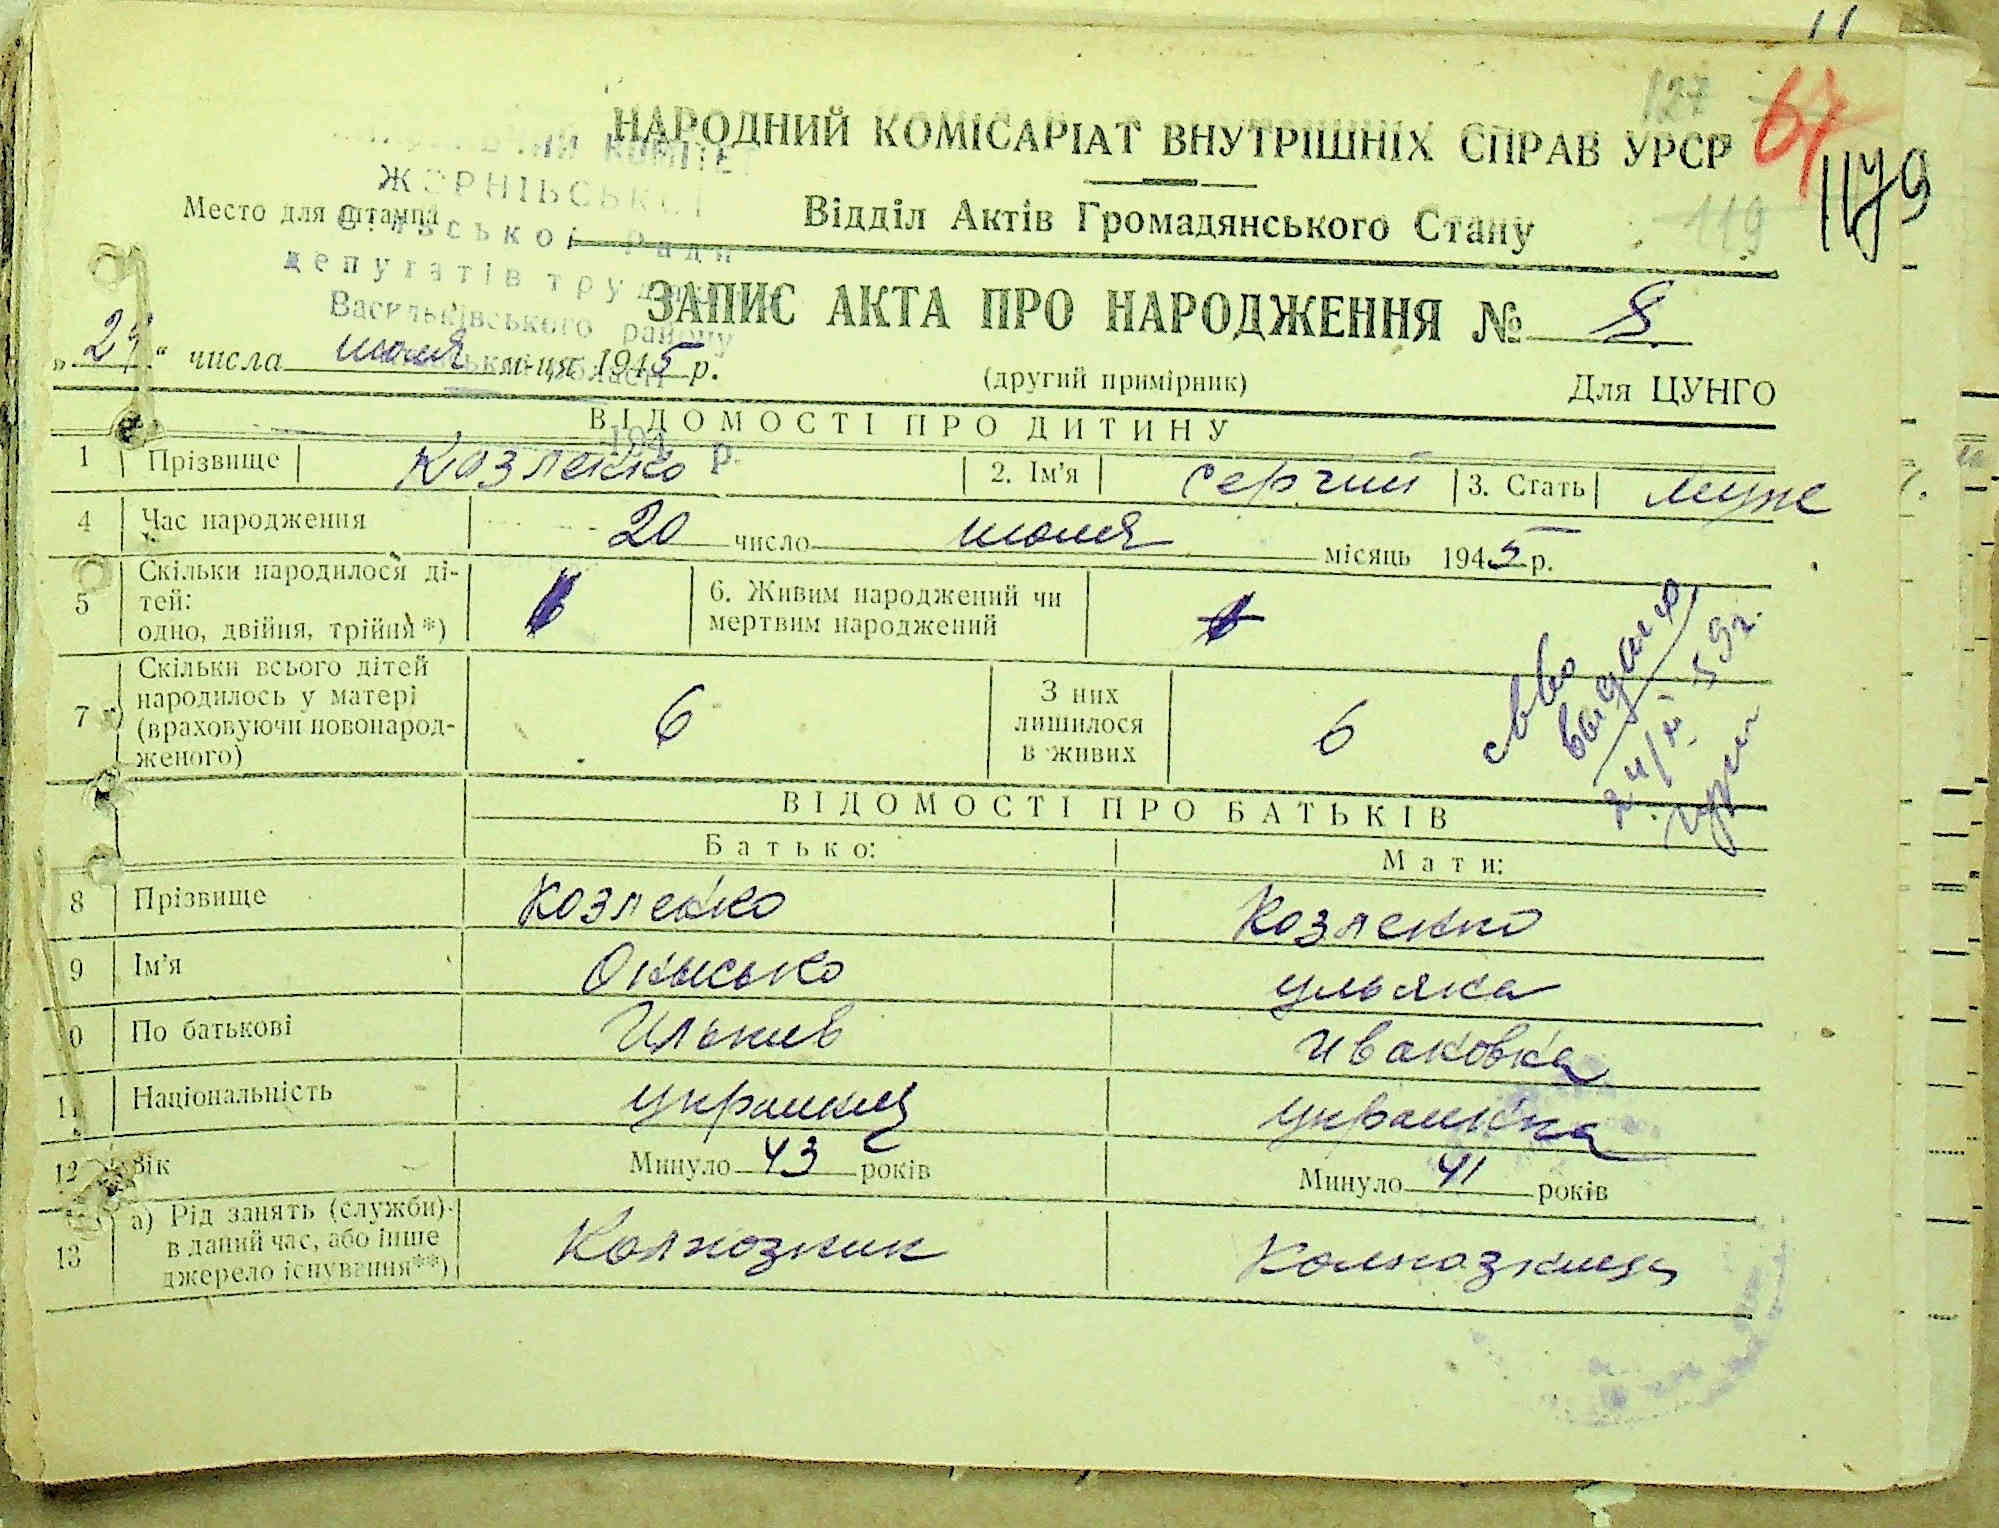 127
67
1179
119
НАРОДНИЙ КОМІСАРІАТ ВНУТРІШНІХ СПРАВ УРСР
КОМІТЕТ
ЖОРНІВСЬКОЇ
сільської Ради
депутатів
Васильківського району
області
194 р.
Место для штампа
Відділ Актів Громадянського Стану
ЗАПИС АКТА ПРО НАРОДЖЕННЯ № 8.
"24" числа июля м-ця 1945 р.
(другий примірник)
Для ЦУНГО
ВІДОМОСТІ ПРО ДИТИНУ
1 Прізвище Козленко 2. Ім'я Сергий 3. Стать муж
4 Час народження 20 число июля місяць 1945 р.
5 Скільки народилося ді-
тей:
одно, двійня, трійня *)
6. Живим народжений чи
мертвим народжений
7 Скільки всього дітей
народилось у матері
(враховуючи новонарод-
женого)
6
З них
лишилося
в живих
6
св-во
выдано
59г.
ВІДОМОСТІ ПРО БАТЬКІВ
Батько: Мати:
8 Прізвище Козленко Козленко
9 Ім'я Онысько Ульяна
0 По батькові Ильков Ивановна
11 Національність украинец украинка
12 Вік Минуло 43 років Минуло 41 років
13 а) Рід занять (служби)
в даний час, або інше
джерело існування**)
Колхозник Колхозница